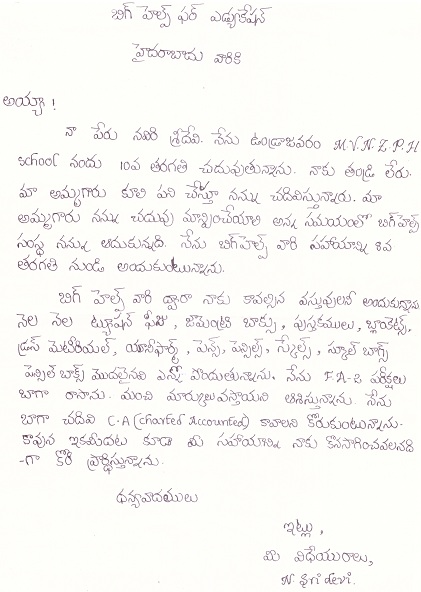 బిగ్ హెల్ప్ ఫర్ ఎడ్యుకేషన్
హైదరాబాదు వారికి
అయ్యా !
నా పేరు నవరి శ్రీదేవి. నేను ఉండ్రాజవరం M.V.N.Z.P.H
school నందు 10వ తరగతి చదువుతున్నాను. నాకు తండ్రి లేరు.
మా అమ్మగారు కూలి పని చేస్తూ నన్ను చదివిస్తున్నారు. మా
అమ్మగారు నన్ను చదువు మాన్పించేయాలి అన్న సమయంలో బిగ్‌హెల్ప్
సంస్థ నన్ను ఆదుకున్నది. నేను బిగ్‌హెల్ప్ వారి సహాయాన్ని 8వ
తరగతి నుండి అందుకుంటున్నాను.
బిగ్ హెల్ప్ వారి ద్వారా నాకు కావల్సిన వస్తువులనే అందుకున్నాను
నెల నెల ట్యూషన్ ఫీజు, జామెంట్రి బాక్సు, పుస్తకములు, బ్లాంకెట్స్,
డ్రస్ మెటీరియల్, యూనీఫార్మ్, పెన్స్, పెన్సిల్స్, స్కేల్స్, స్కూల్ బాగ్స్
పెన్సిల్ బాక్స్ మొదలైనవి ఎన్నో పొందుతున్నాను. నేను F.A-2 పరీక్షలు
బాగా రాసాను. మంచి మార్కులువస్తాయని ఆశిస్తున్నాను. నేను
బాగా చదివి C.A (charted Accounted) కావాలని కోరుకుంటున్నాను.
కావున ఇకమీదట కూడా మీ సహాయాన్ని నాకు కొనసాగించవలనది
-గా కోరి ప్రార్థిస్తున్నాను.
ధన్యవాదములు
ఇట్లు,
మీ విధేయురాలు,
N. Sri devi.